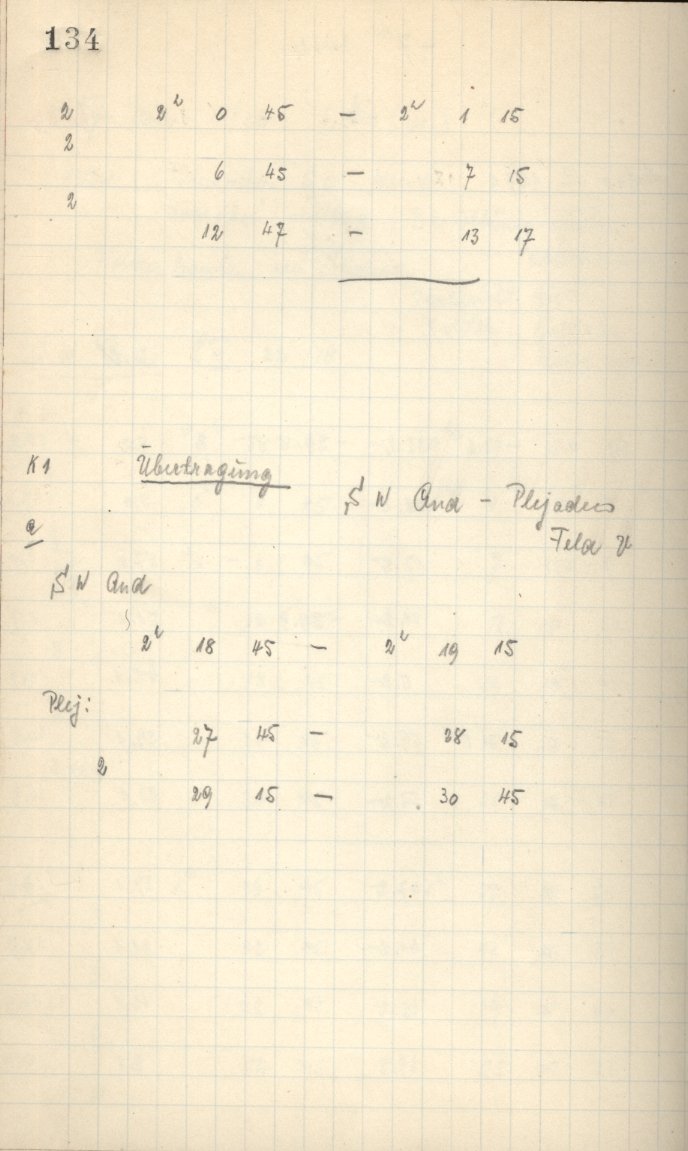 134
2 2ʰ 0 45 – 2ʰ 1 15
2
6 45 – 7 15
2
12 47 – 13 17
K1 Übertragung
S W And – Plejaden
a Feld V
S W And
2ʰ 18 45 – 2ʰ 19 15
Plej:
27 45 – 28 15
2
29 15 – 30 45